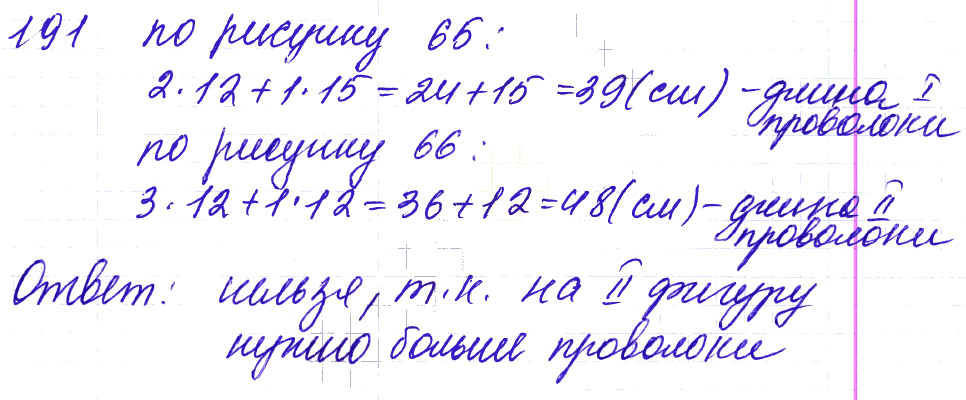 191 по рисунку 65:
2·12+1·15=24+15=39(см) - длина I
проволоки
по рисунку 66:
3·12+1·12=36+12=48(см) - длина II
проволоки
Ответ: нельзя, т.к. на II фигуру
нужно больше проволоки